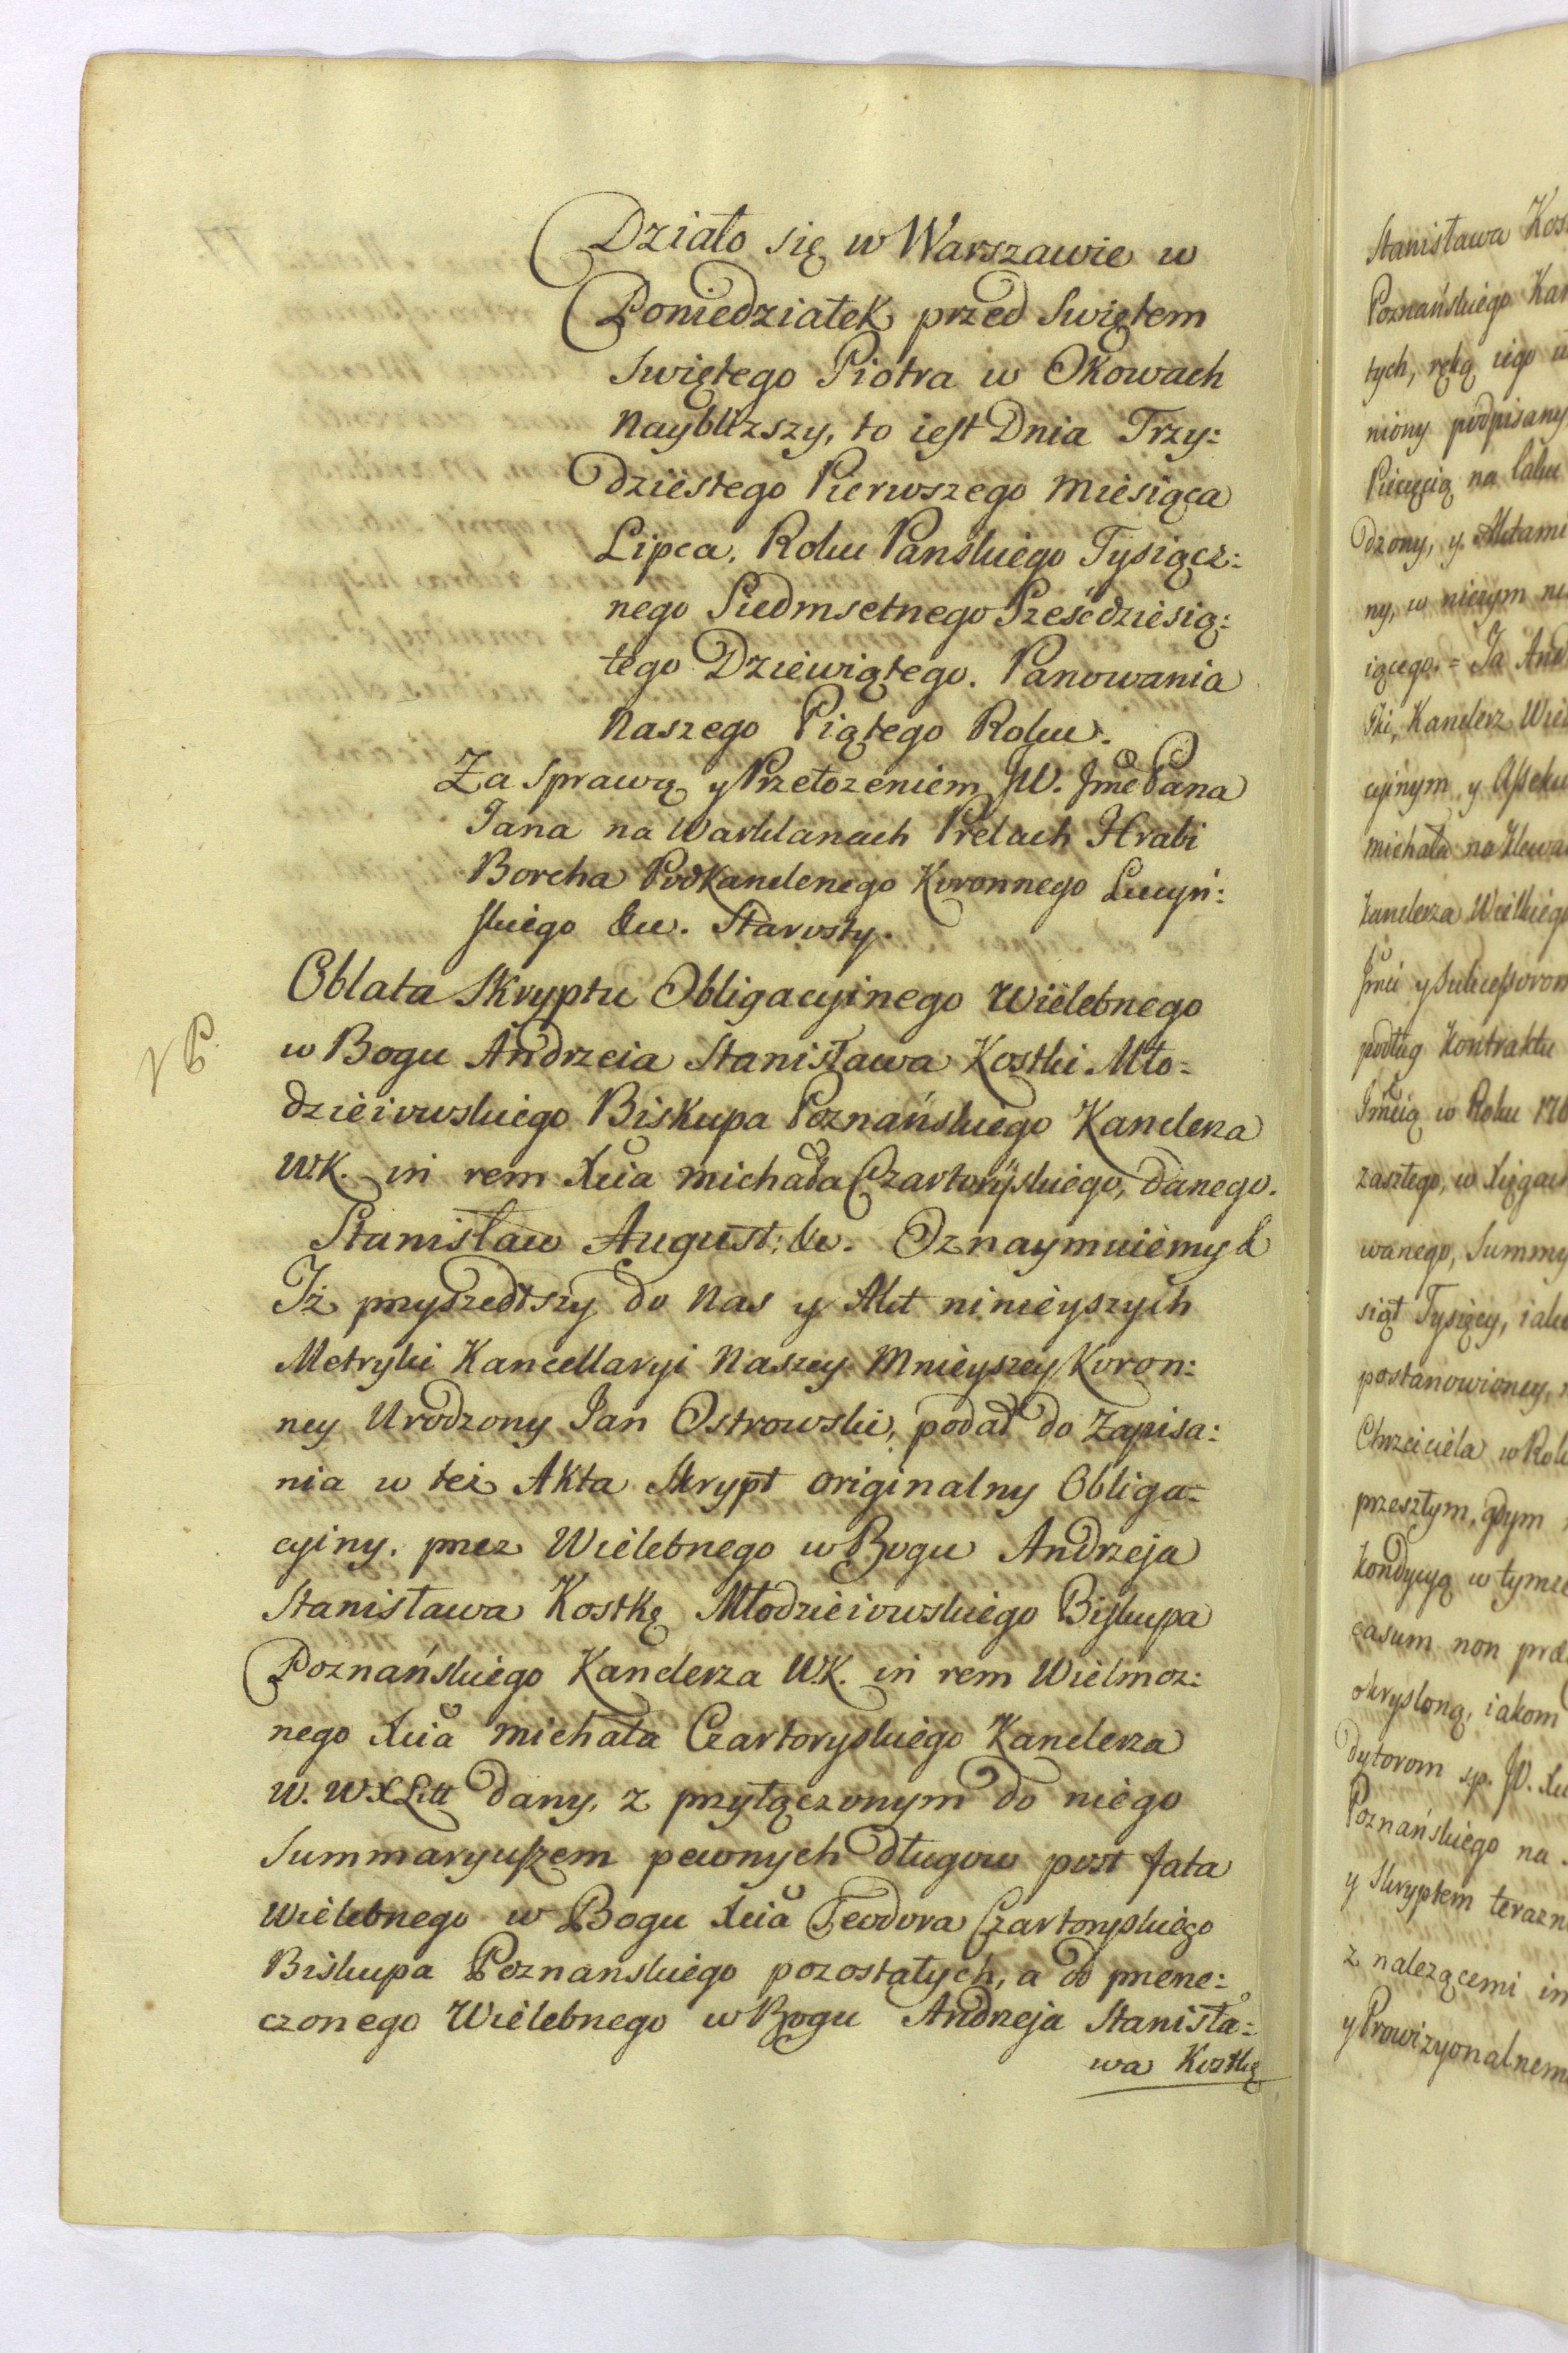 Działo się w Warszawie w
Poniedziałek przed Swiętem
Swiętego Piotra w Okowach
Naybliższy, to iest Dnia Trzy:
dziestego Pierwszego Miesiąca
Lipca, Roku Pańskiego Tysiącz:
nego Siedmsetnego Sześćdziesią:
tego Dziewiątego. Panowania
Naszego Piątego Roku.
Za Sprawą y Przełozeniem JW. Jmć Pana
Jana na Warklanach Prelach Hrabi
Borcha Podkanclerzego Koronnego Lucyń:
skiego &c. Starosty.
Oblata Skryptu Obligacyinego Wielebnego
w Bogu Andrzeia Stanisława Kostki Mło:
dzieiowskiego Biskupa Poznańskiego Kanclerza
WK. in rem Xcia Michała Czartoryskiego, danego.
Stanisław August; &c. Oznaymuiemy &
Iż przyszedłszy do Nas y Akt ninieyszych
Metryki Kancellaryi Naszey Mnieyszey Koron:
ney Urodzony Jan Ostrowski, podał do Zapisa:
nia w też Akta Skrypt originalny Obliga:
cyiny, przez Wielebnego w Bogu Andrzeja
Stanisława Kostkę Młodzieiowskiego Biskupa
Poznańskiego Kanclerza W.K. in rem Wielmoz:
nego Xcia Michała Czartoryskiego Kanclerza
W. WXLitt dany, z przyłączonym do niego
Summaryuszem pewnych długow post fata
Wielebnego w Bogu Xcia Teodora Czartoryskiego
Biskupa Poznanskiego pozostałych, a do przerze:
czonego Wielebnego w Bogu Andrzeja Stanisła:
wa Kostkę
NB.
Stanisława
Poznańskiego
tych, ręką iego
niony podpisany
Pieczęcią na laku
dzony, y Aktami
ny, w niczym
iącego. = Ja
ski, Kanclerz
cyinym y Asseku
Michała na Klewa
Kanclerza Wielkiego
Jmci y Sukcessorom
podług Kontraktu
Jmcią w Roku 176
zaszłego, w Xięgach
wanego, Summy
siąt Tysięcy, iako
postanowioney,
Chrzciciela w Roku
przeszłym, gdym
kondycyą w tymże
casum non
okrysloną, iakom
dytorom sp. JW.
Poznańskiego na
y Skryptem
z należącemi
y Prowizyonalnem